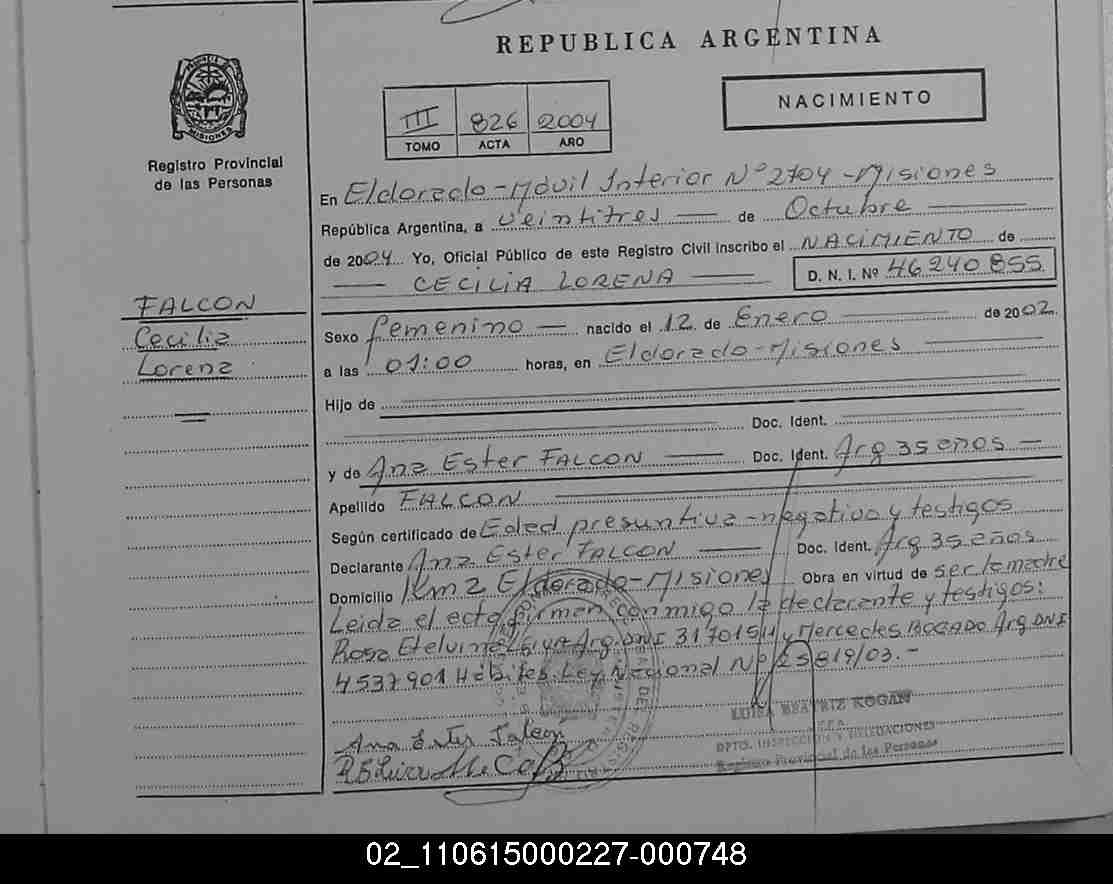 REPUBLICA ARGENTINA
PROVINCIA DE
MISIONES
Registro Provincial
de las Personas
III 826 2004
TOMO ACTA AÑO
NACIMIENTO
En Eldorado-Móvil Interior Nº 2704-Misiones
República Argentina, a veintitres de Octubre
de 2004 Yo, Oficial Público de este Registro Civil inscribo el NACIMIENTO de
CECILIA LORENA D. N. I. Nº 46240855
FALCON
Cecilia
Lorena
Sexo femenino nacido el 12 de Enero de 2002
a las 01:00 horas, en Eldorado-Misiones
Hijo de
Doc. Ident.
y de Ana Ester FALCON Doc. Ident. Arg 35 años
Apellido FALCON
Según certificado de Edad presuntiva-negativa y testigos
Declarante Ana Ester FALCON Doc. Ident. Arg 35 años
Domicilio Km 2 Eldorado-Misiones Obra en virtud de ser la madre
Leida el acta firman conmigo la declarante y testigos:
Rosa Etelvina Arg. DNI y Mercedes BOGADO Arg DNI
4537901 Hábiles. Ley Nacional Nº 25819/03.-
Ana Ester Falcon
LUISA BEATRIZ KOGAN
DPTO. INSPECCION Y DELEGACIONES
Registro Provincial de las Personas
02_110615000227-000748